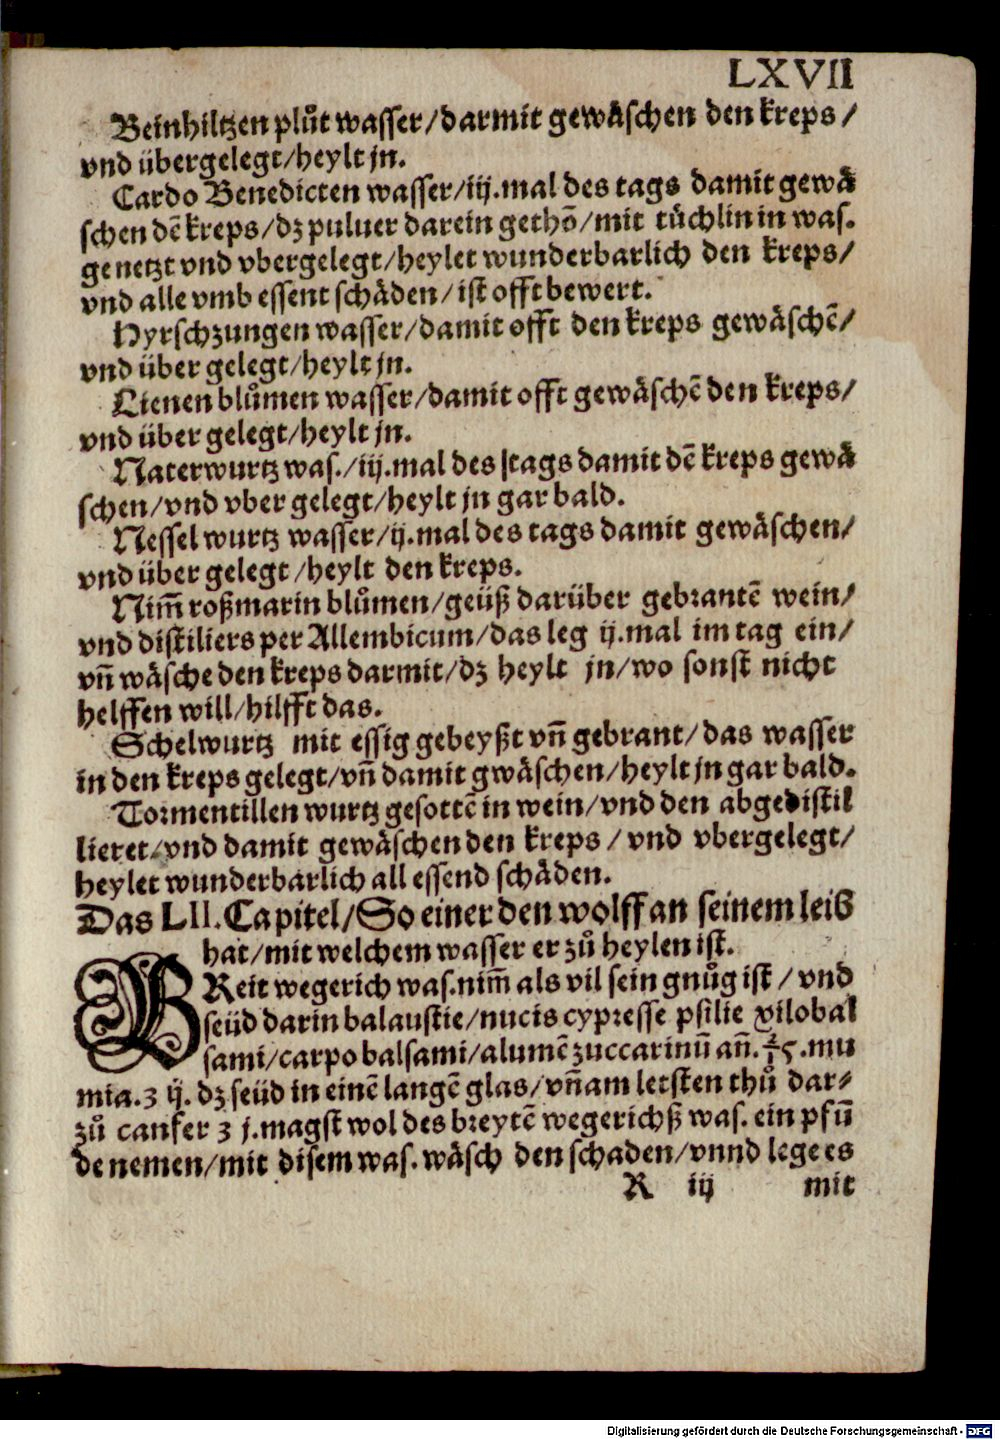 LXVII
Beinhiltzen plůt wasser/darmit gewäschen den kreps/
vnd übergelegt/heylt jn.
Cardo Benedicten wasser/iij.mal des tags damit gewä
schen dē kreps/dz puluer darein gethō/mit tüchlin in was.
genetzt vnd vbergelegt/heylet wunderbarlich den kreps/
vnd alle vmb essent schäden/ist offt bewert.
Hyrschzungen wasser/damit offt den kreps gewäschē/
vnd über gelegt/heylt jn.
Lienen blůmen wasser/damit offt gewäschē den kreps/
vnd über gelegt/heylt jn.
Naterwurtz was./iij.mal des tags damit dē kreps gewä
schen/vnd vber gelegt/heylt jn gar bald.
Nessel wurtz wasser/ij.mal des tags damit gewäschen/
vnd über gelegt/heylt den kreps.
Nim̄ roßmarin blůmen/geüß darüber gebrantē wein/
vnd distiliers per Allembicum/das leg ij.mal im tag ein/
vn̄ wäsche den kreps darmit/dz heylt jn/wo sonst nicht
helffen will/hilfft das.
Schelwurtz mit essig gebeyßt vn̄ gebrant/das wasser
in den kreps gelegt/vn̄ damit gwäschen/heylt jn gar bald.
Tormentillen wurtz gesottē in wein/vnd den abgedistil
lieret/vnd damit gewäschen den kreps/vnd vbergelegt/
heylet wunderbarlich all essend schäden.
Das LII.Capitel/So einer den wolff an seinem leib
hat/mit welchem wasser er zů heylen ist.
BReit wegerich was.nim̄ als vil sein gnůg ist/vnd
seüd darin balaustie/nucis cypresse psilie xilobal
sami/carpo balsami/alumē zuccarinū an̄. .mu
mia.ʒ ij. dz seüd in einē langē glas/vn̄ am letsten thů dar⸗
zů canfer ʒ j.magst wol des breytē wegerichß was. ein pfū
de nemen/mit disem was.wäsch den schaden/vnnd lege es
R iij mit
Digitalisierung gefördert durch die Deutsche Forschungsgemeinschaft - DFG